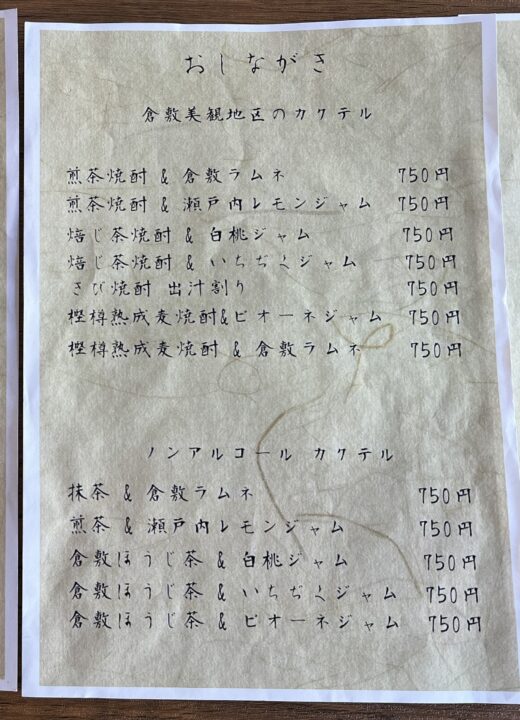 おしながき
倉敷美観地区のカクテル
煎茶焼酎 & 倉敷ラムネ 750円
煎茶焼酎 & 瀬戸内レモンジャム 750円
焙じ茶焼酎 & 白桃ジャム 750円
焙じ茶焼酎 & いちぢくジャム 750円
きび焼酎 出汁割り 750円
樫樽熟成麦焼酎&ピオーネジャム 750円
樫樽熟成麦焼酎 & 倉敷ラムネ 750円
ノンアルコール カクテル
抹茶 & 倉敷ラムネ 750円
煎茶 & 瀬戸内レモンジャム 750円
倉敷ほうじ茶 & 白桃ジャム 750円
倉敷ほうじ茶 & いちぢくジャム 750円
倉敷ほうじ茶 & ピオーネジャム 750円